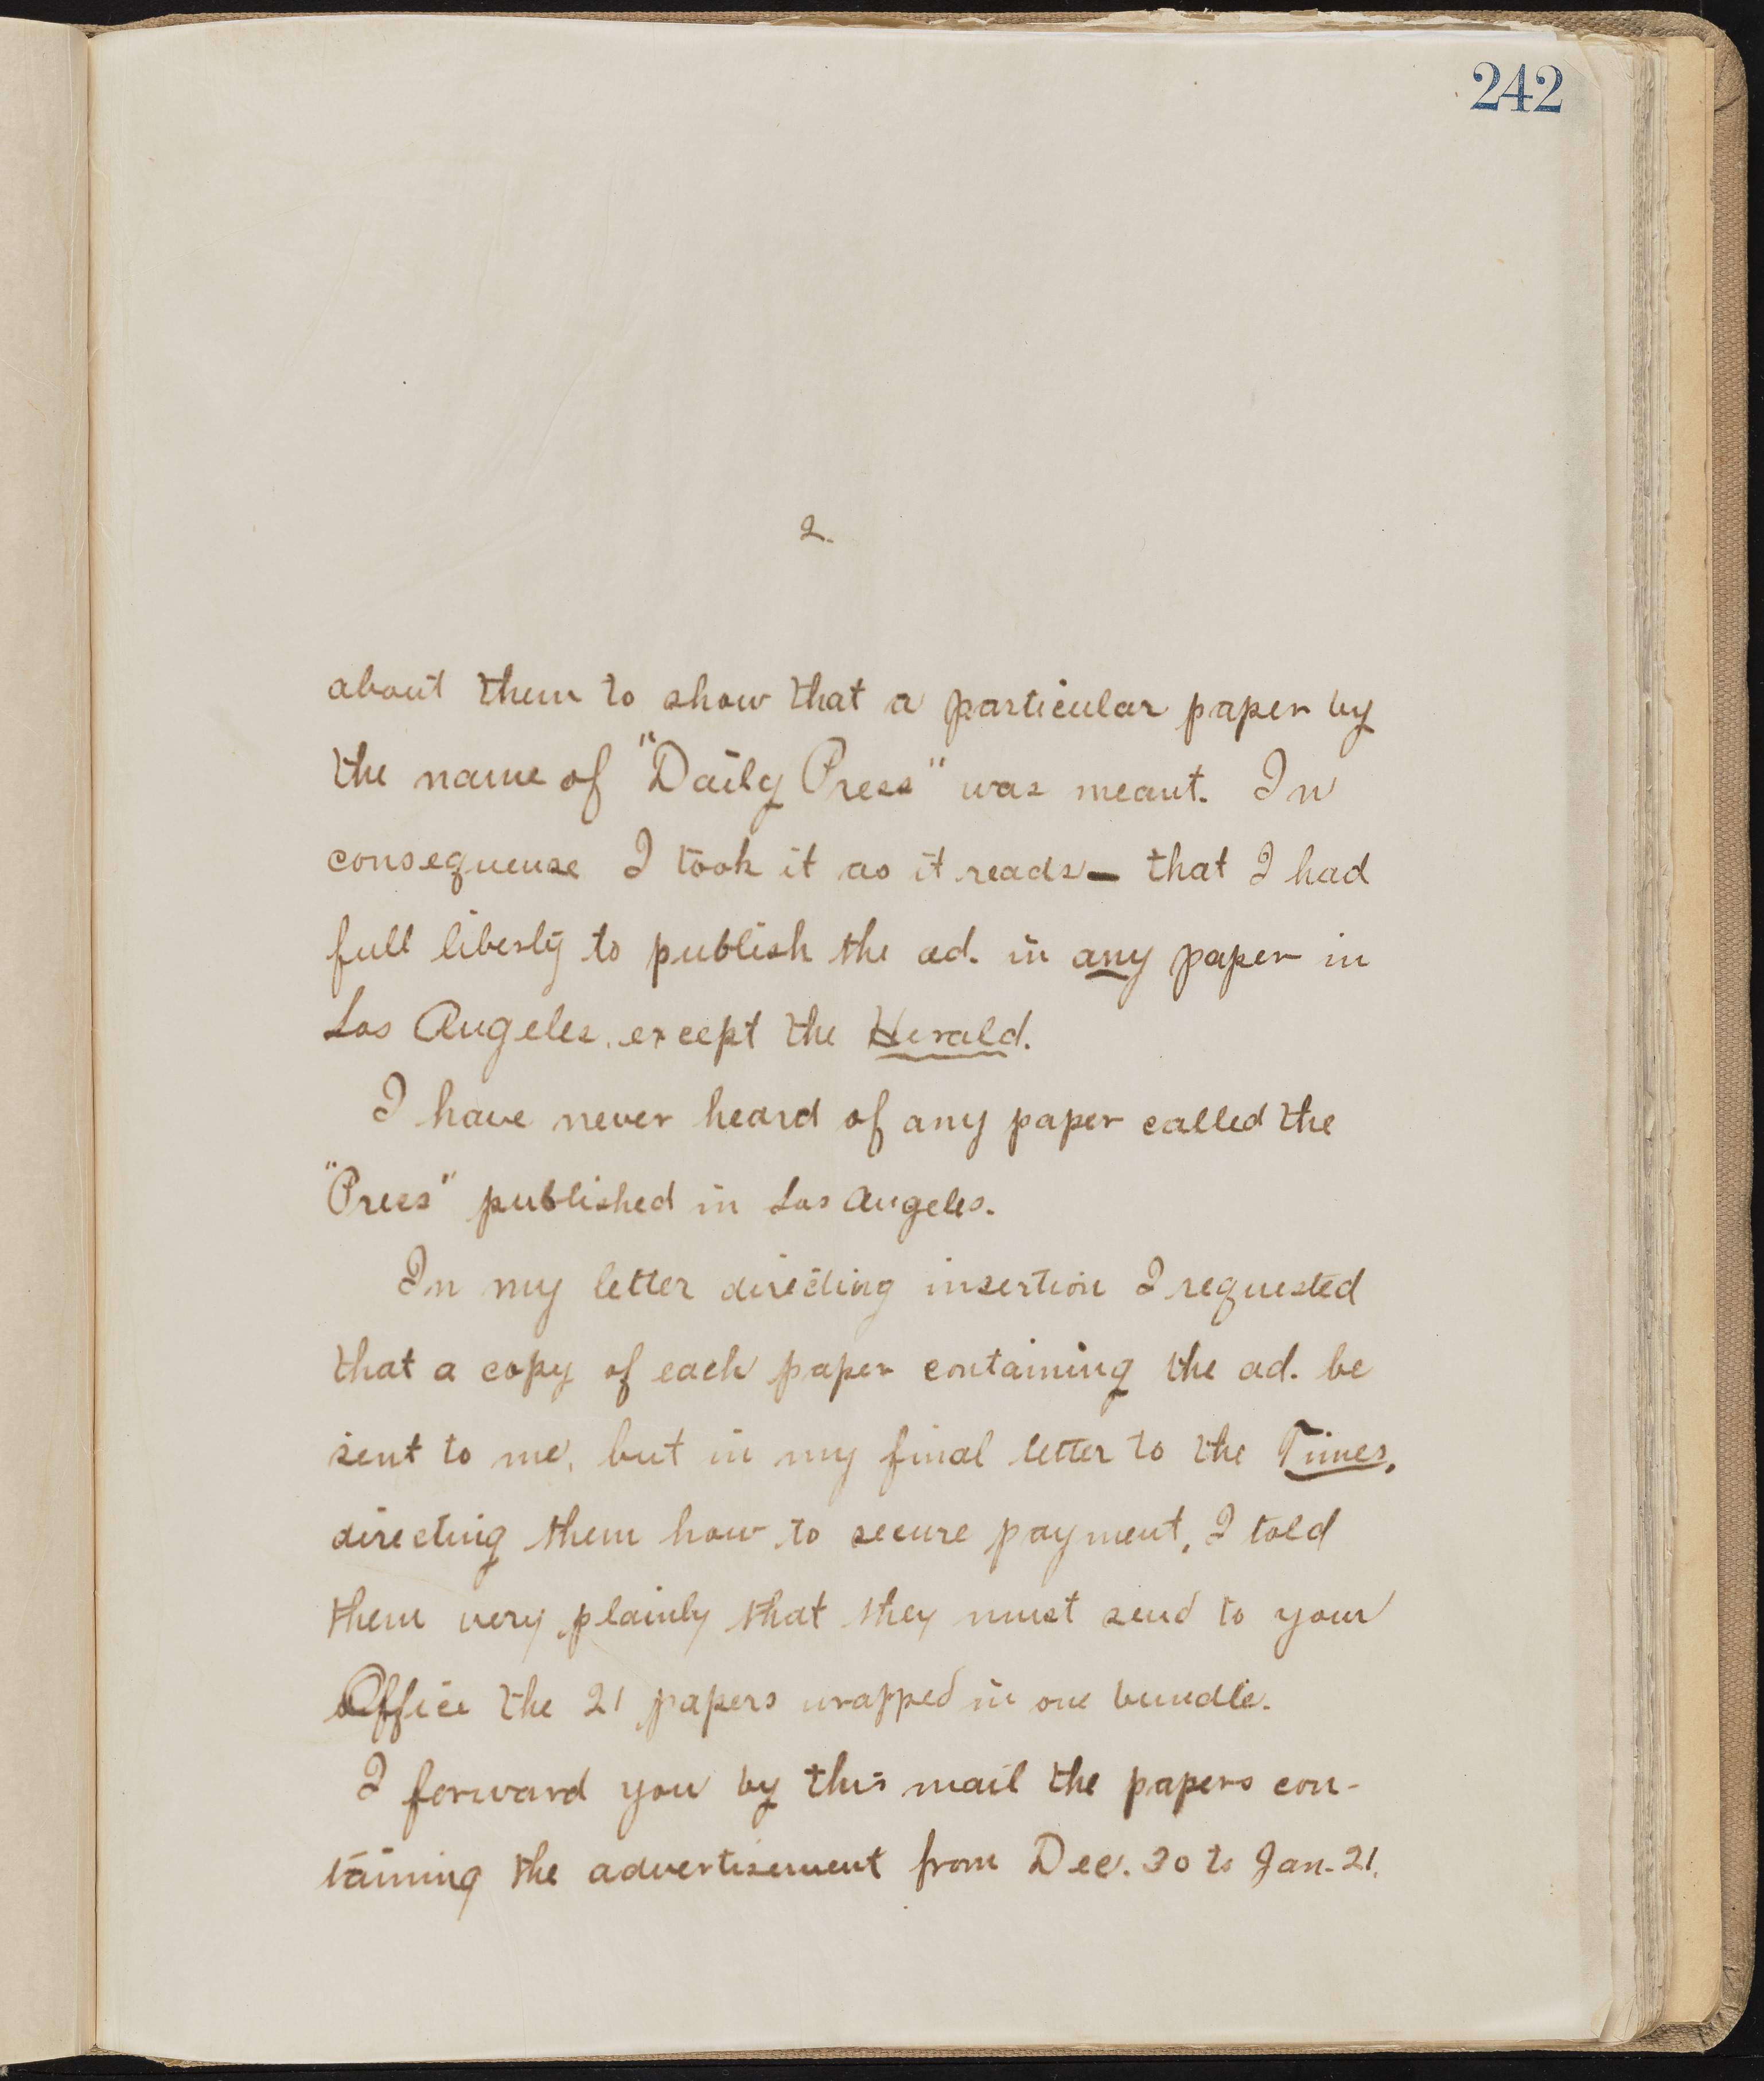 242
2.
about them to show that a particular paper by
the name of "Daily Press" was meant. In
consequense I took it as it reads — that I had
full liberty to publish the ad. in any paper in
Los Angeles, except the Herald.
I have never heard of any paper called the
"Press" published in Los Angeles.
In my letter directing insertion I requested
that a copy of each paper containing the ad. be
sent to me, but in my final letter to the Times,
directing them how to secure payment, I told
them very plainly that they must send to your
Office the 21 papers wrapped in one bundle.
I forward you by this mail the papers con-
taining the advertisement from Dec. 30 to Jan. 21.